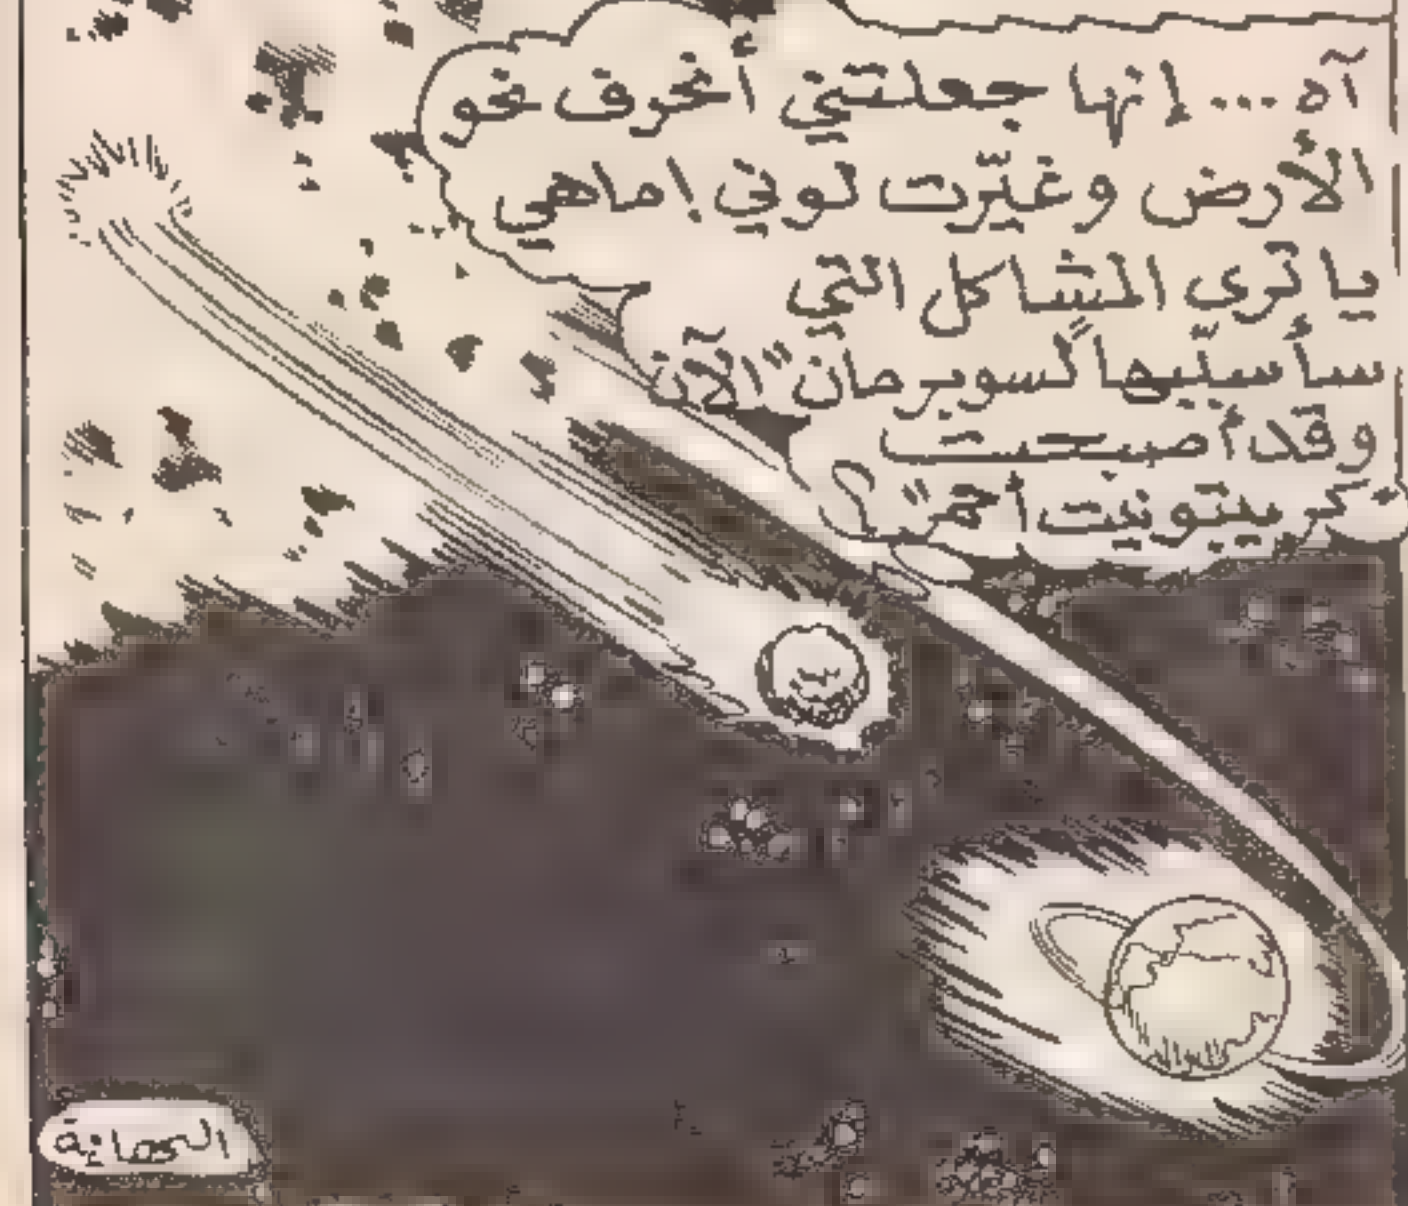 آه... إنها جعلتني أنحرف نحو
الأرض وغيّرت لوني! ما هي
يا ترى المشاكل التي
سأسبّبها لـ"سوبرمان" الآن
وقد أصبحت
"كريبتونيت أحمر"؟